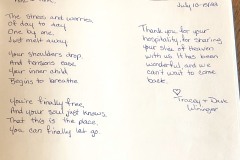 The stress and worries
of day to day
One by one,
Just melt away.
Your shoulders drop,
And tensions ease
Your inner child
Begins to breathe
You're finally free,
And your soul just knows
That this is the place
You can finally let go.
July 10-15/23
Thank you for your
hospitality, for sharing
your slice of heaven
with us. It has been
wonderful, and we
can't wait to come
back.
Tracey + Dave